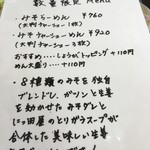 数量限定 Menu
・みそらーめん ¥760
(大判チャーシュー1枚)
・みそチャーシューメン ¥920
(大判チャーシュー3枚)
おすすめ……しょうがトッピング +110円
めん大盛り…+110円
・8種類のみそを独自
ブレンドし、ガツンと生姜
を効かせたみそダレと
とりガラスープが
合体した美味しい生姜